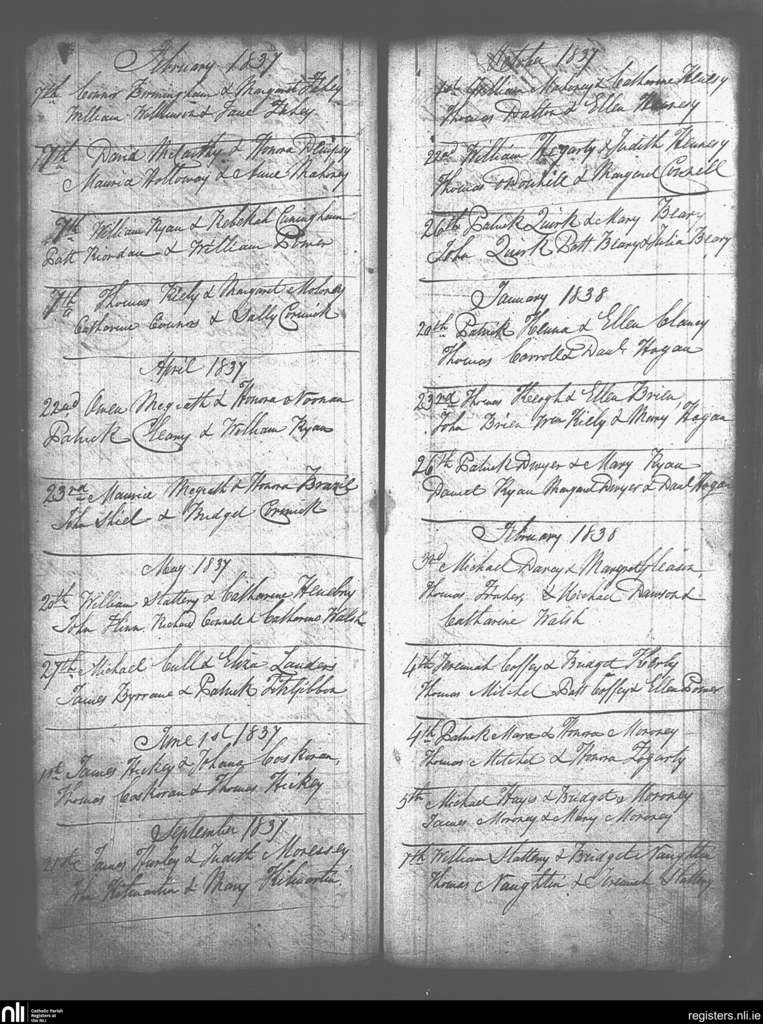 February 1837
7th Connor Birmingham & Margaret Fahey
William Wilkinson & Fahey
7th David McCarthy & Honora Dempsey
Maurice Holloway & Mahony
7th William Ryan & Rebekah Cuningham
Patt Riordan & William Power
7th Thomas Kiely & Margaret Moloney
Catherine Connors & Sally Cormick
April 1837
22nd Owen Megrath & Honora Noonan
Patrick Cleary & William Ryan
23rd Maurice Megrath & Honora Brazil
John Shiel & Bridget Cormick
May 1837
20th William Slattery & Catharine Hendry
John Flinn Richard Connele & Catharine Walsh
27th Michael Cull & Eliza Landers
James Byrrane & Patrick Fitzgibbon
June 1st 1837
1st James Hickey & Johana Coskoran,
Thomas Coskoran & Thomas Hickey
September 1837
James Hurley & Judith
Kilmartin & Mary Kilmartin
October 1837
William & Catherine
Thomas Dalton & Ellen Hennesy
22nd William Hegarty & Judith Hennesy
Thomas & Margaret
26th Patrick Quirk & Mary Beary
John Quirk Patt Beary & Julia Beary
January 1838
20th Patrick & Ellen Clancy
Thomas Carroll & Danl Hogan
23rd Thomas Keeogh & Ellen Brien
John Brien Wm Kiely & Merry Hogan
26th Patrick Dwyer & Mary Ryan
Daniel Ryan Margaret Dwyer & Danl Hogan
February 1838
3rd Michael Darcy & Margret Gleason,
Thomas Fraher, & Michael Dawson &
Catharine Walsh
4th Jeremiah Coffey & Bridget
Thomas Mitchel Patt Coffey & Ellen Power
4th Patrick Mara & Honora Moroney
Thomas Mitchel & Honora Fogarty
5th Michael Hayes & Bridget Moroney
James Moroney & Mary Moroney
7th William Slattery & Bridget Naughtin
Thomas Naughtin & Jeremiah Slattery
nli
Catholic Parish
Registers at
the NLI
registers.nli.ie